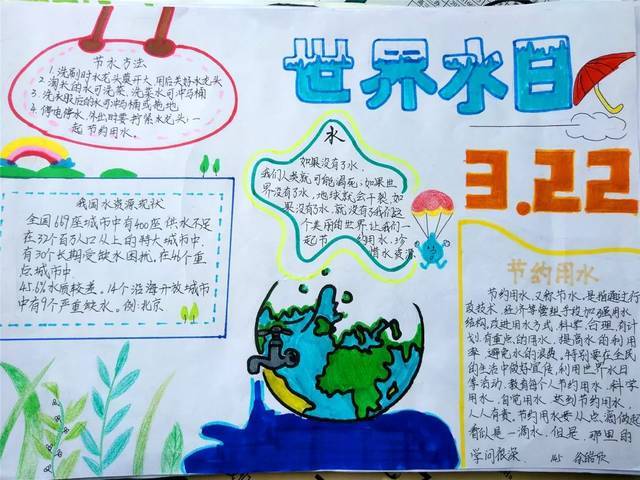 世界水日
3.22
节水方法
1. 洗刷时水龙头莫开大,用后关好水龙头
2. 淘米的水可洗菜,洗菜水可冲马桶
3. 洗衣服后的水可冲马桶或拖地
4. 停电停水,外出时要拧紧水龙头,一
起节约用水。
水
如果没有了水,
我们人类就可能渴死;如果世
界没有了水,地球就会干裂;如
果没有了水,就没有了我们这
个美丽的世界,让我们一
起节约用水,珍
惜水资源
我国水资源现状
全国669座城市中有400座供水不足
在32个百万人口以上的特大城市中,
有30个长期受缺水困扰,在46个重
点城市中
45.6%水质较差。14个沿海开放城市
中有9个严重缺水。例:北京
节约用水
节约用水,又称节水。是指通过行
政技术,经济等管理手段加强用水
结构,改进用水方式,科学、合理、有计
划、有重点的用水,提高水的利用
率,避免水的浪费。特别要在全民
的生活中做好宣传,利用世界水日
等活动,教育每个人节约用水,科学
用水,自觉用水,达到节约用水,
人人有责。节约用水要从点滴做起
看似是一滴水,但是,那里的
学问很深。